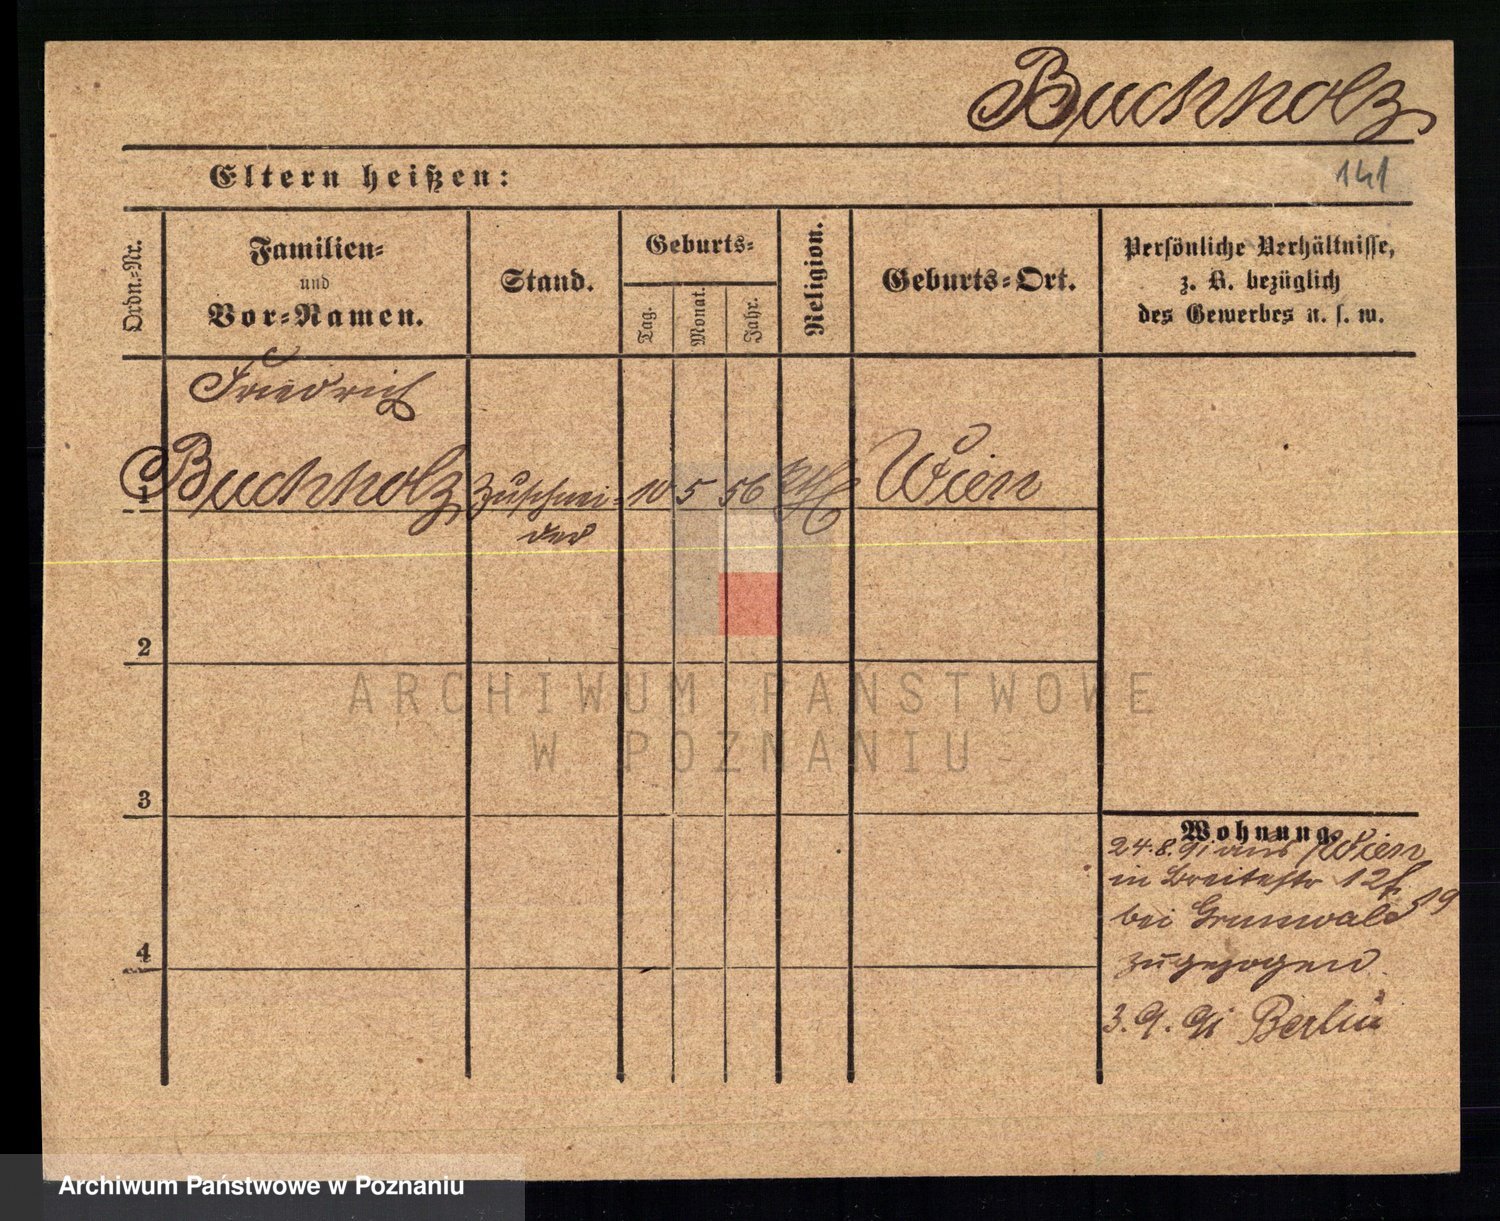 Buchholz
Eltern heißen:
141
Ordn.-Nr.
Familien-
und
Vor-Namen.
Stand.
Geburts-
Tag.
Monat.
Jahr.
Religion.
Geburts-Ort.
Persönliche Verhältnisse,
z. B. bezüglich
des Gewerbes u. s. w.
Friedrich
1 Buchholz Zuschnei- 10 5 56 Wien
der
2
ARCHIWUM PAŃSTWOWE
W POZNANIU
3
Wohnung.
24.8.91 aus Wien
in Breitestr 12
bei Grunwald 19
zugezogen
4
3.9.91 Berlin
Archiwum Państwowe w Poznaniu